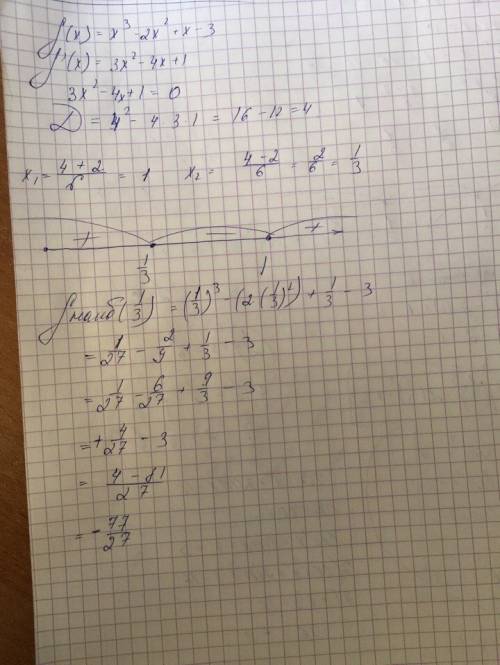 f(x) = x³ - 2x² + x - 3
f'(x) = 3x² - 4x + 1
3x² - 4x + 1 = 0
D = 4² - 4 · 3 · 1 = 16 - 12 = 4
x₁ = (4 + 2)/6 = 1 x₂ = (4 - 2)/6 = 2/6 = 1/3
+ − +
1/3 1
f наиб (1/3) = (1/3)³ - (2(1/3)²) + 1/3 - 3
= 1/27 - 2/9 + 1/3 - 3
= 1/27 - 6/27 + 9/3 - 3
= + 4/27 - 3
= (4 - 81)/27
= - 77/27